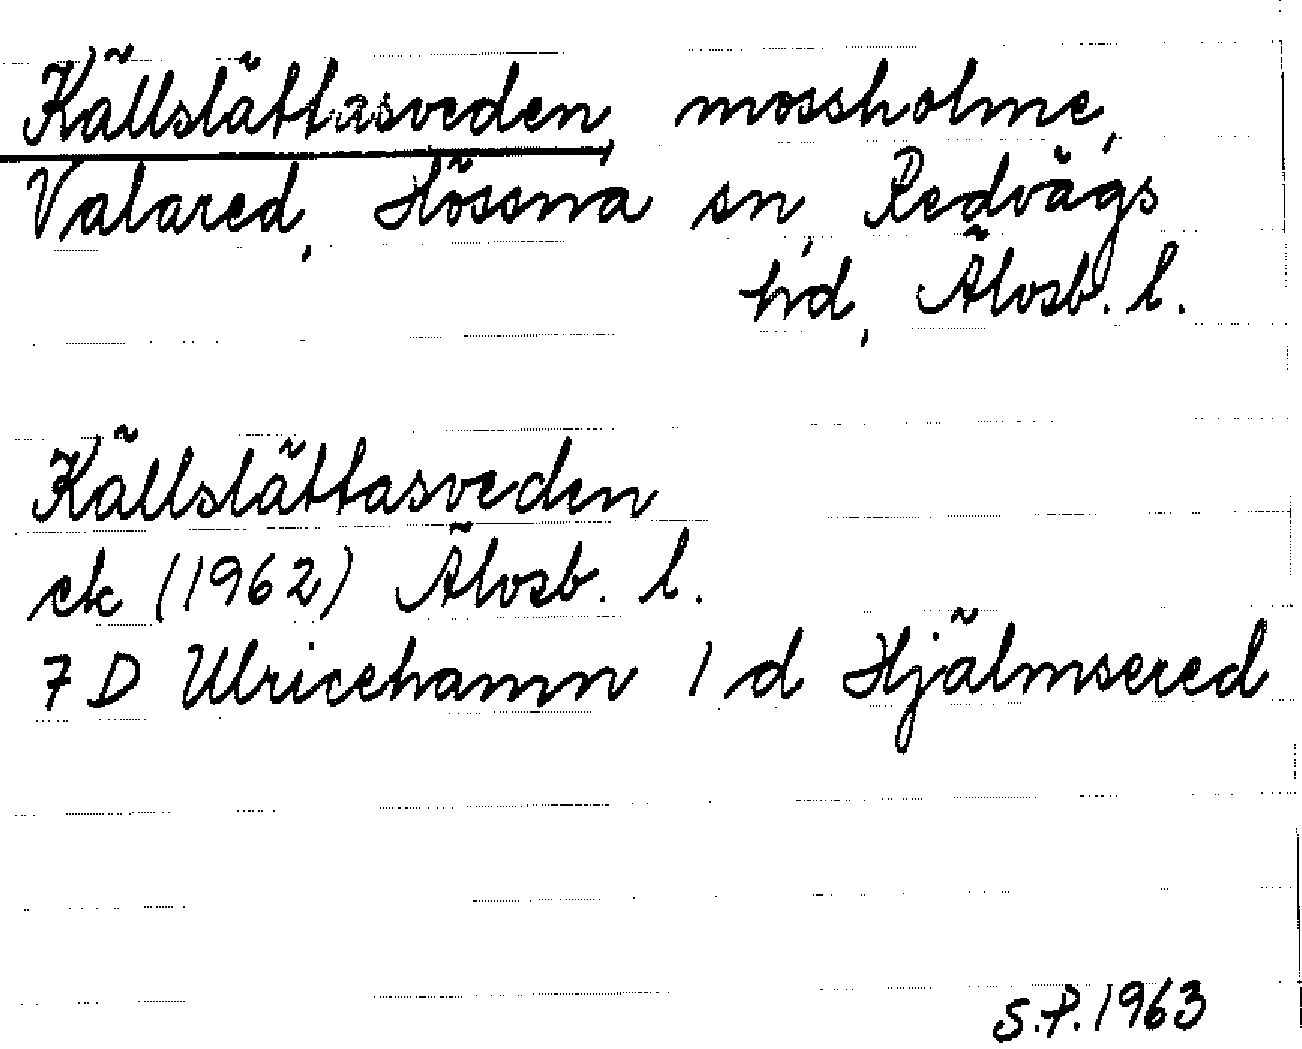 Källslättasveden, mossholme,
Valared, Hössna sn, Redvägs
hd, Älvsb. l.
Källslättasveden
ek (1962) Älvsb. l.
7 D Ulricehamn 1 d Hjälmsered
S.P. 1963